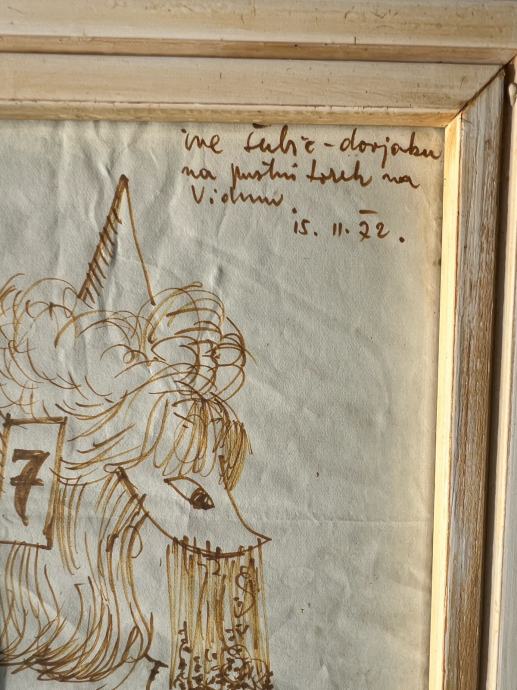 ive šubic - dorjaku
na pustni torek na
Vidmu
15. II. 72.
7